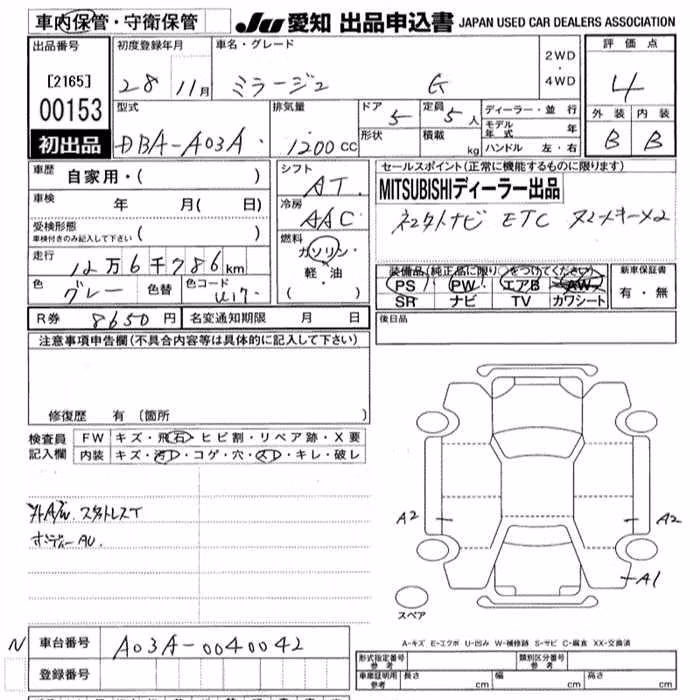 車内保管・守衛保管
JU 愛知 出品申込書 JAPAN USED CAR DEALERS ASSOCIATION
出品番号 初度登録年月 車名・グレード 2WD・4WD 評価点
[2165] 28 11月 ミラージュ G 4
00153 型式 排気量 ドア 5 定員 5人 ディーラー・並行 外装 内装
初出品 DBA-A03A 1200cc 形状 積載 kg モデル年式 年 B B
ハンドル 左・右
車歴 自家用・( ) シフト AT. セールスポイント(正常に機能するものに限ります)
車検 年 月( 日) 冷房 AAC MITSUBISHIディーラー出品
受検形態 ( ) ナビ ETC
車検付きのみ記入して下さい
燃料 ガソリン・軽・油 ( )
走行 12万6千786km 装備品(純正品に限り○をつけてください) 新車保証書
色 グレー 色替 色コード U17 PS PW エアB AW 有・無
SR ナビ TV カワシート
R券 8650円 名変通知期限 月 日 後日品
注意事項申告欄(不具合内容等は具体的に記入して下さい)
修復歴 有 (箇所 )
検査員記入欄 FW キズ・飛石・ヒビ割・リペア跡・X要
内装 キズ・汚レ・コゲ・穴・スレ・キレ・破レ
A2 A2
A1
スペア
N 車台番号 A03A-0040042 A-キズ E-エクボ U-凹み W-補修跡 S-サビ C-腐食 XX-交換済
登録番号 形式指定番号 参考 類別区分番号 参考
車庫証明用 参考 長さ cm 幅 cm 高さ cm